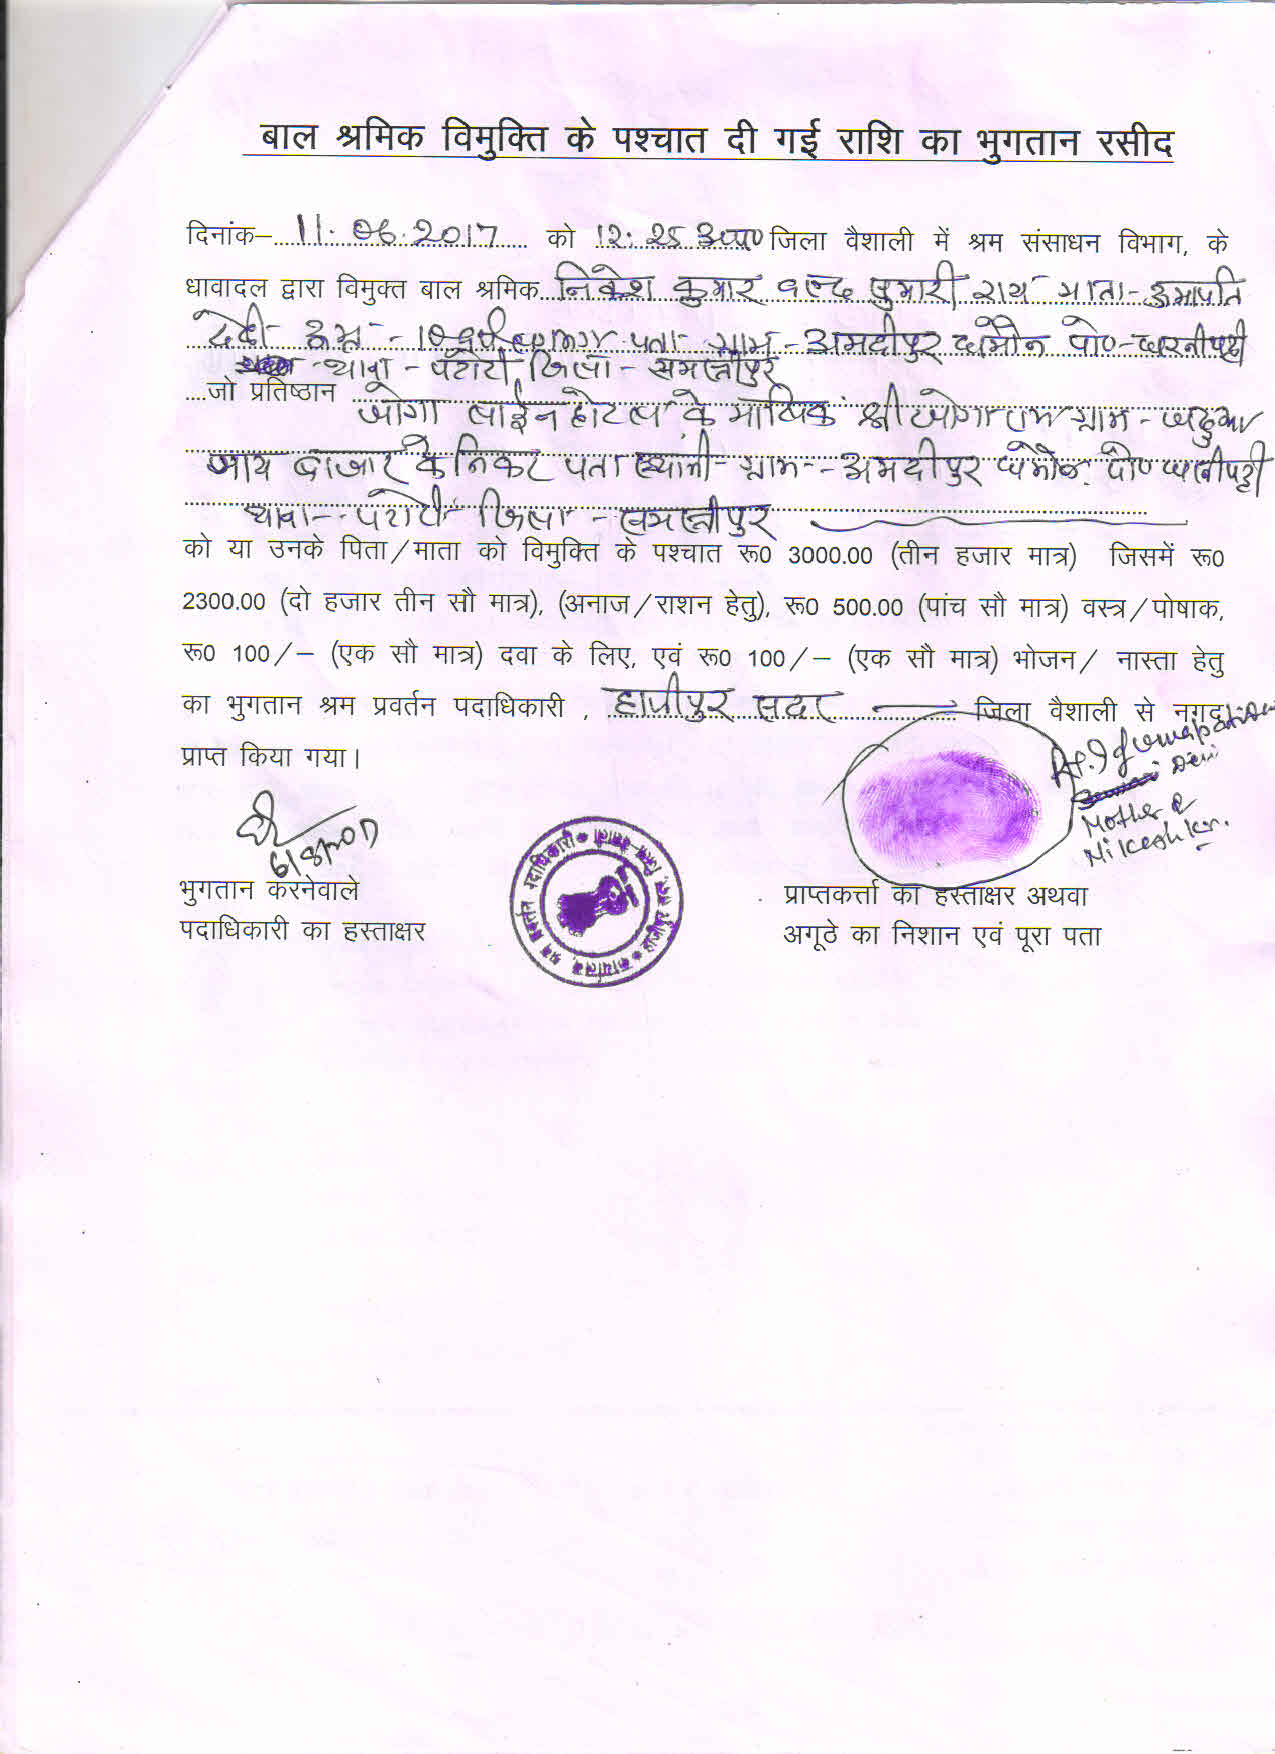 बाल श्रमिक विमुक्ति के पश्चात दी गई राशि का भुगतान रसीद
दिनांक– 11.06.2017 को 12:25 जिला वैशाली में श्रम संसाधन विभाग, के
धावादल द्वारा विमुक्त बाल श्रमिक निकेश कुमार राय माता- उमापति
देवी उम्र - 10 वर्ष लगभग पता ग्राम - अमदीपुर पो०-
थाना - पटोरी जिला - समस्तीपुर
जो प्रतिष्ठान जोगा लाईन होटल के मालिक श्री जोगा राय ग्राम -
बाजार के निकट पता स्थायी ग्राम -- अमदीपुर पो०
थाना - पटोरी जिला - समस्तीपुर
को या उनके पिता/माता को विमुक्ति के पश्चात रू0 3000.00 (तीन हजार मात्र) जिसमें रू0
2300.00 (दो हजार तीन सौ मात्र), (अनाज/राशन हेतु), रू0 500.00 (पांच सौ मात्र) वस्त्र/पोषाक,
रू0 100/– (एक सौ मात्र) दवा के लिए, एवं रू0 100/– (एक सौ मात्र) भोजन/ नास्ता हेतु
का भुगतान श्रम प्रवर्तन पदाधिकारी , हाजीपुर सदर जिला वैशाली से नगद
प्राप्त किया गया।
Umapati
Devi
Mother of
Nikesh Kr.
भुगतान करनेवाले
पदाधिकारी का हस्ताक्षर
कार्यालय, श्रम प्रवर्तन पदाधिकारी
हाजीपुर सदर, जिला-वैशाली
प्राप्तकर्त्ता का हस्ताक्षर अथवा
अगूठे का निशान एवं पूरा पता